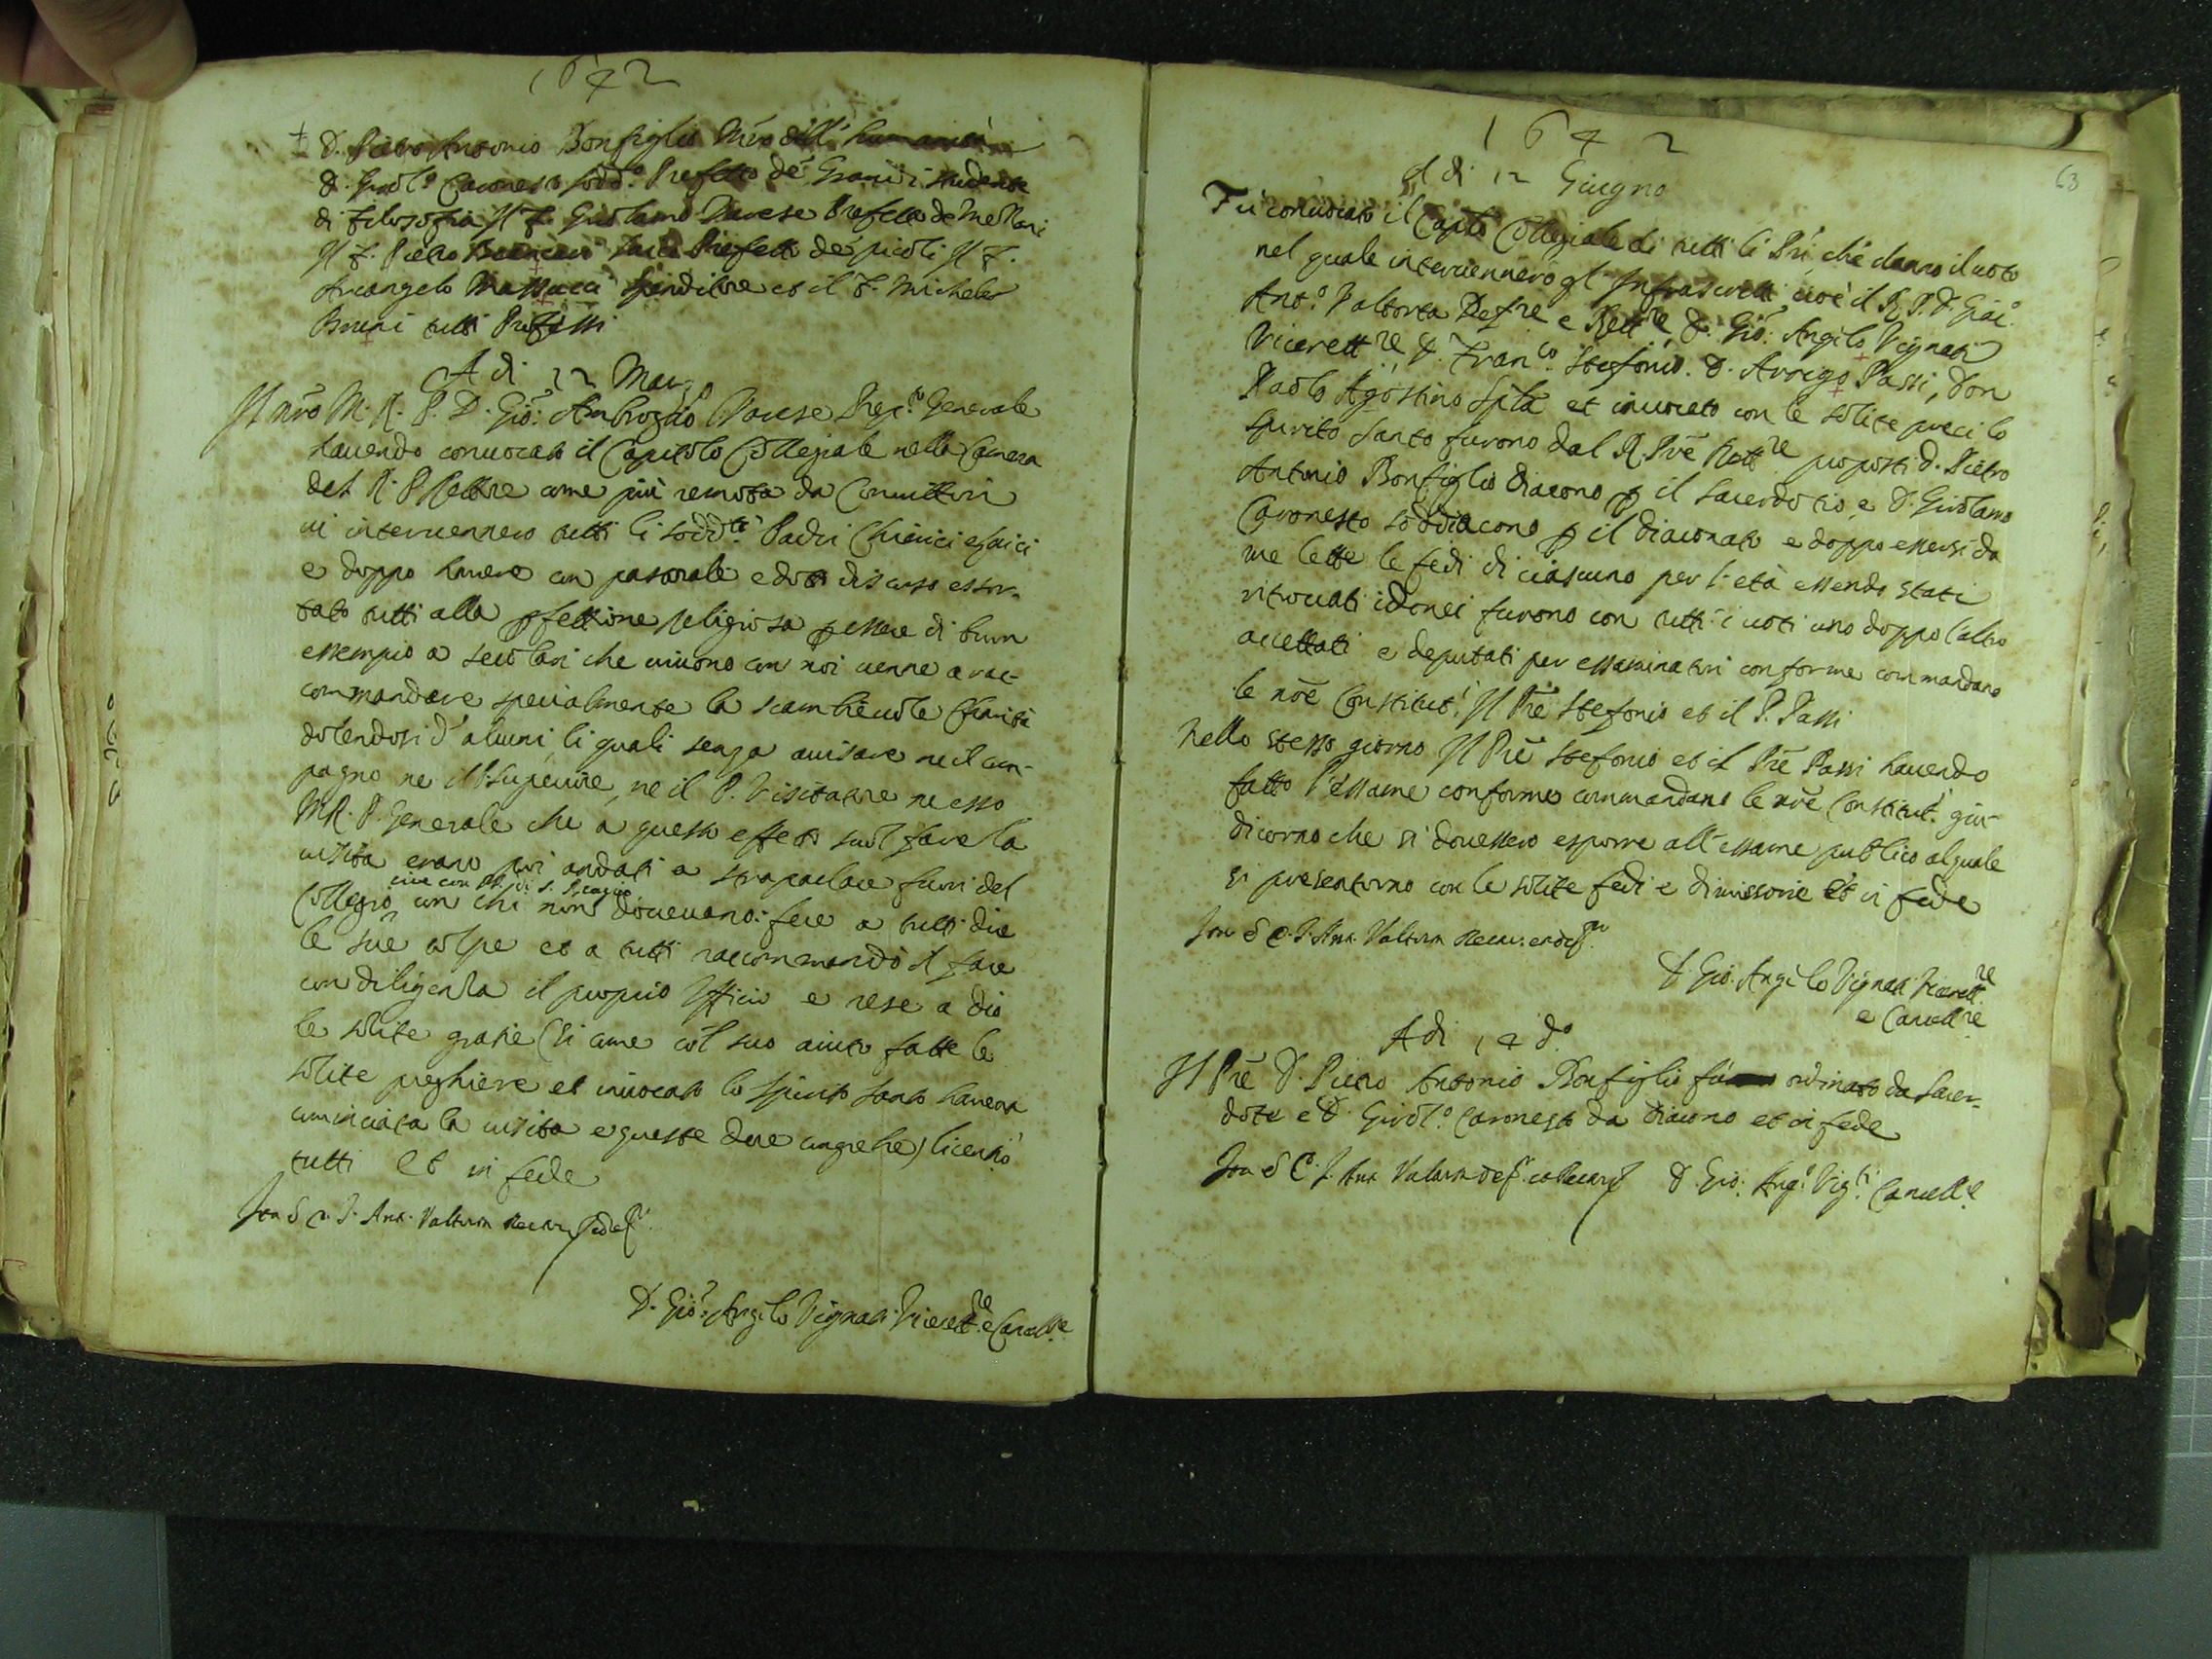 1642
D. Pietro Antonio Bonfiglio Mro dell' humanità
D. Girol.o Caronesto sodd.o Prefetto de Grandi studente
di Filosofia Il F. Girolamo Varese Prefetto de Mezzani
Il F. Pietro Prefetto de picoli Il F.
Arcangelo Massucci spenditore et il F. Michele
Bruni tutti Professi
A di 22 Marzo
Il nro M. R. P. D. Gio: Ambrogio Varese Prep.to Generale
hauendo conuocato il Capitolo Collegiale nella Camera
del R. P. Rettore come più remota da Conuittori
ui interuennero tutti li sodd.ti Padri Chierici e laici
e doppo hauere con pastorale e dotto discorso essor-
tato tutti alla pfettione religiosa p essere di buon
essempio a secolari che uiuono con noi uenne a rac-
commandare specialmente la scambieuole Charità
dolendosi d' alcuni, li quali senza auisare ne il com-
pagno ne il Superiore, ne il P. Visitatore ne esso
M.R. P. Generale che a questo effetto suol fare la
uisita erano poi andati a straparlare fuori del
cioè con PP. di S.
Collegio con chi non doueuano: fece a tutti dire
le sue colpe et a tutti raccommandò il fare
con diligenza il proprio Ufficio e rese a Dio
le solite gratie (si come col suo aiuto fatte le
solite preghiere et inuocato lo Spirito Santo haueua
cominciata la uisita e queste due congreghe) licentiò
tutti Et in fede
D. Gio: Angelo Vignati Vicerett.re e Cancell.re
63
1642
A di 12 Giugno
Fù conuocato il Caplo Collegiale di tutti li Pri, che danno il uoto
nel quale interuennero gl' Infrascritti cioè il R. P. D. Giac.o
Ant.o Valtorta Defre e Rett.re, D. Gio: Angelo Vignati
Vicerett.re, D. Fran.co Stefonio. D. Arrigo Passi, Don
Paolo Agostino Spla et inuocato con le solite preci lo
Spirito Santo furono dal R. Pre Rett.re proposti D. Pietro
Antonio Bonfiglio Diacono p il sacerdotio, e D. Girolamo
Caronesto soddiacono p il diaconato e doppo essersi da
me lette le fedi di ciascuno per l' età essendo stati
ritrouati idonei furono con tutti i uoti uno doppo l'altro
accettati e deputati per essaminatori conforme commandano
le nre Constitut.i Il Pre Stefonio et il P. Passi
Nello stesso giorno Il Pre Stefonio et il Pre Passi hauendo
fatto l'essame conforme commandano le nre Constitut.i giu-
dicorno che si douessero esporre all' essame publico al quale
si presentorno con le solite fedi e dimissorie Et in fede
D. Gio. Angelo Vignati Vicerett.re
e Cancell.re
A di 14 d.o
Il Pre D. Pietro Antonio Bonfiglio fù ordinato da Sacer-
dote e D. Girol.o Caronesto da Diacono et in fede
D. Gio: Ang.o Vig.ti Cancell.re